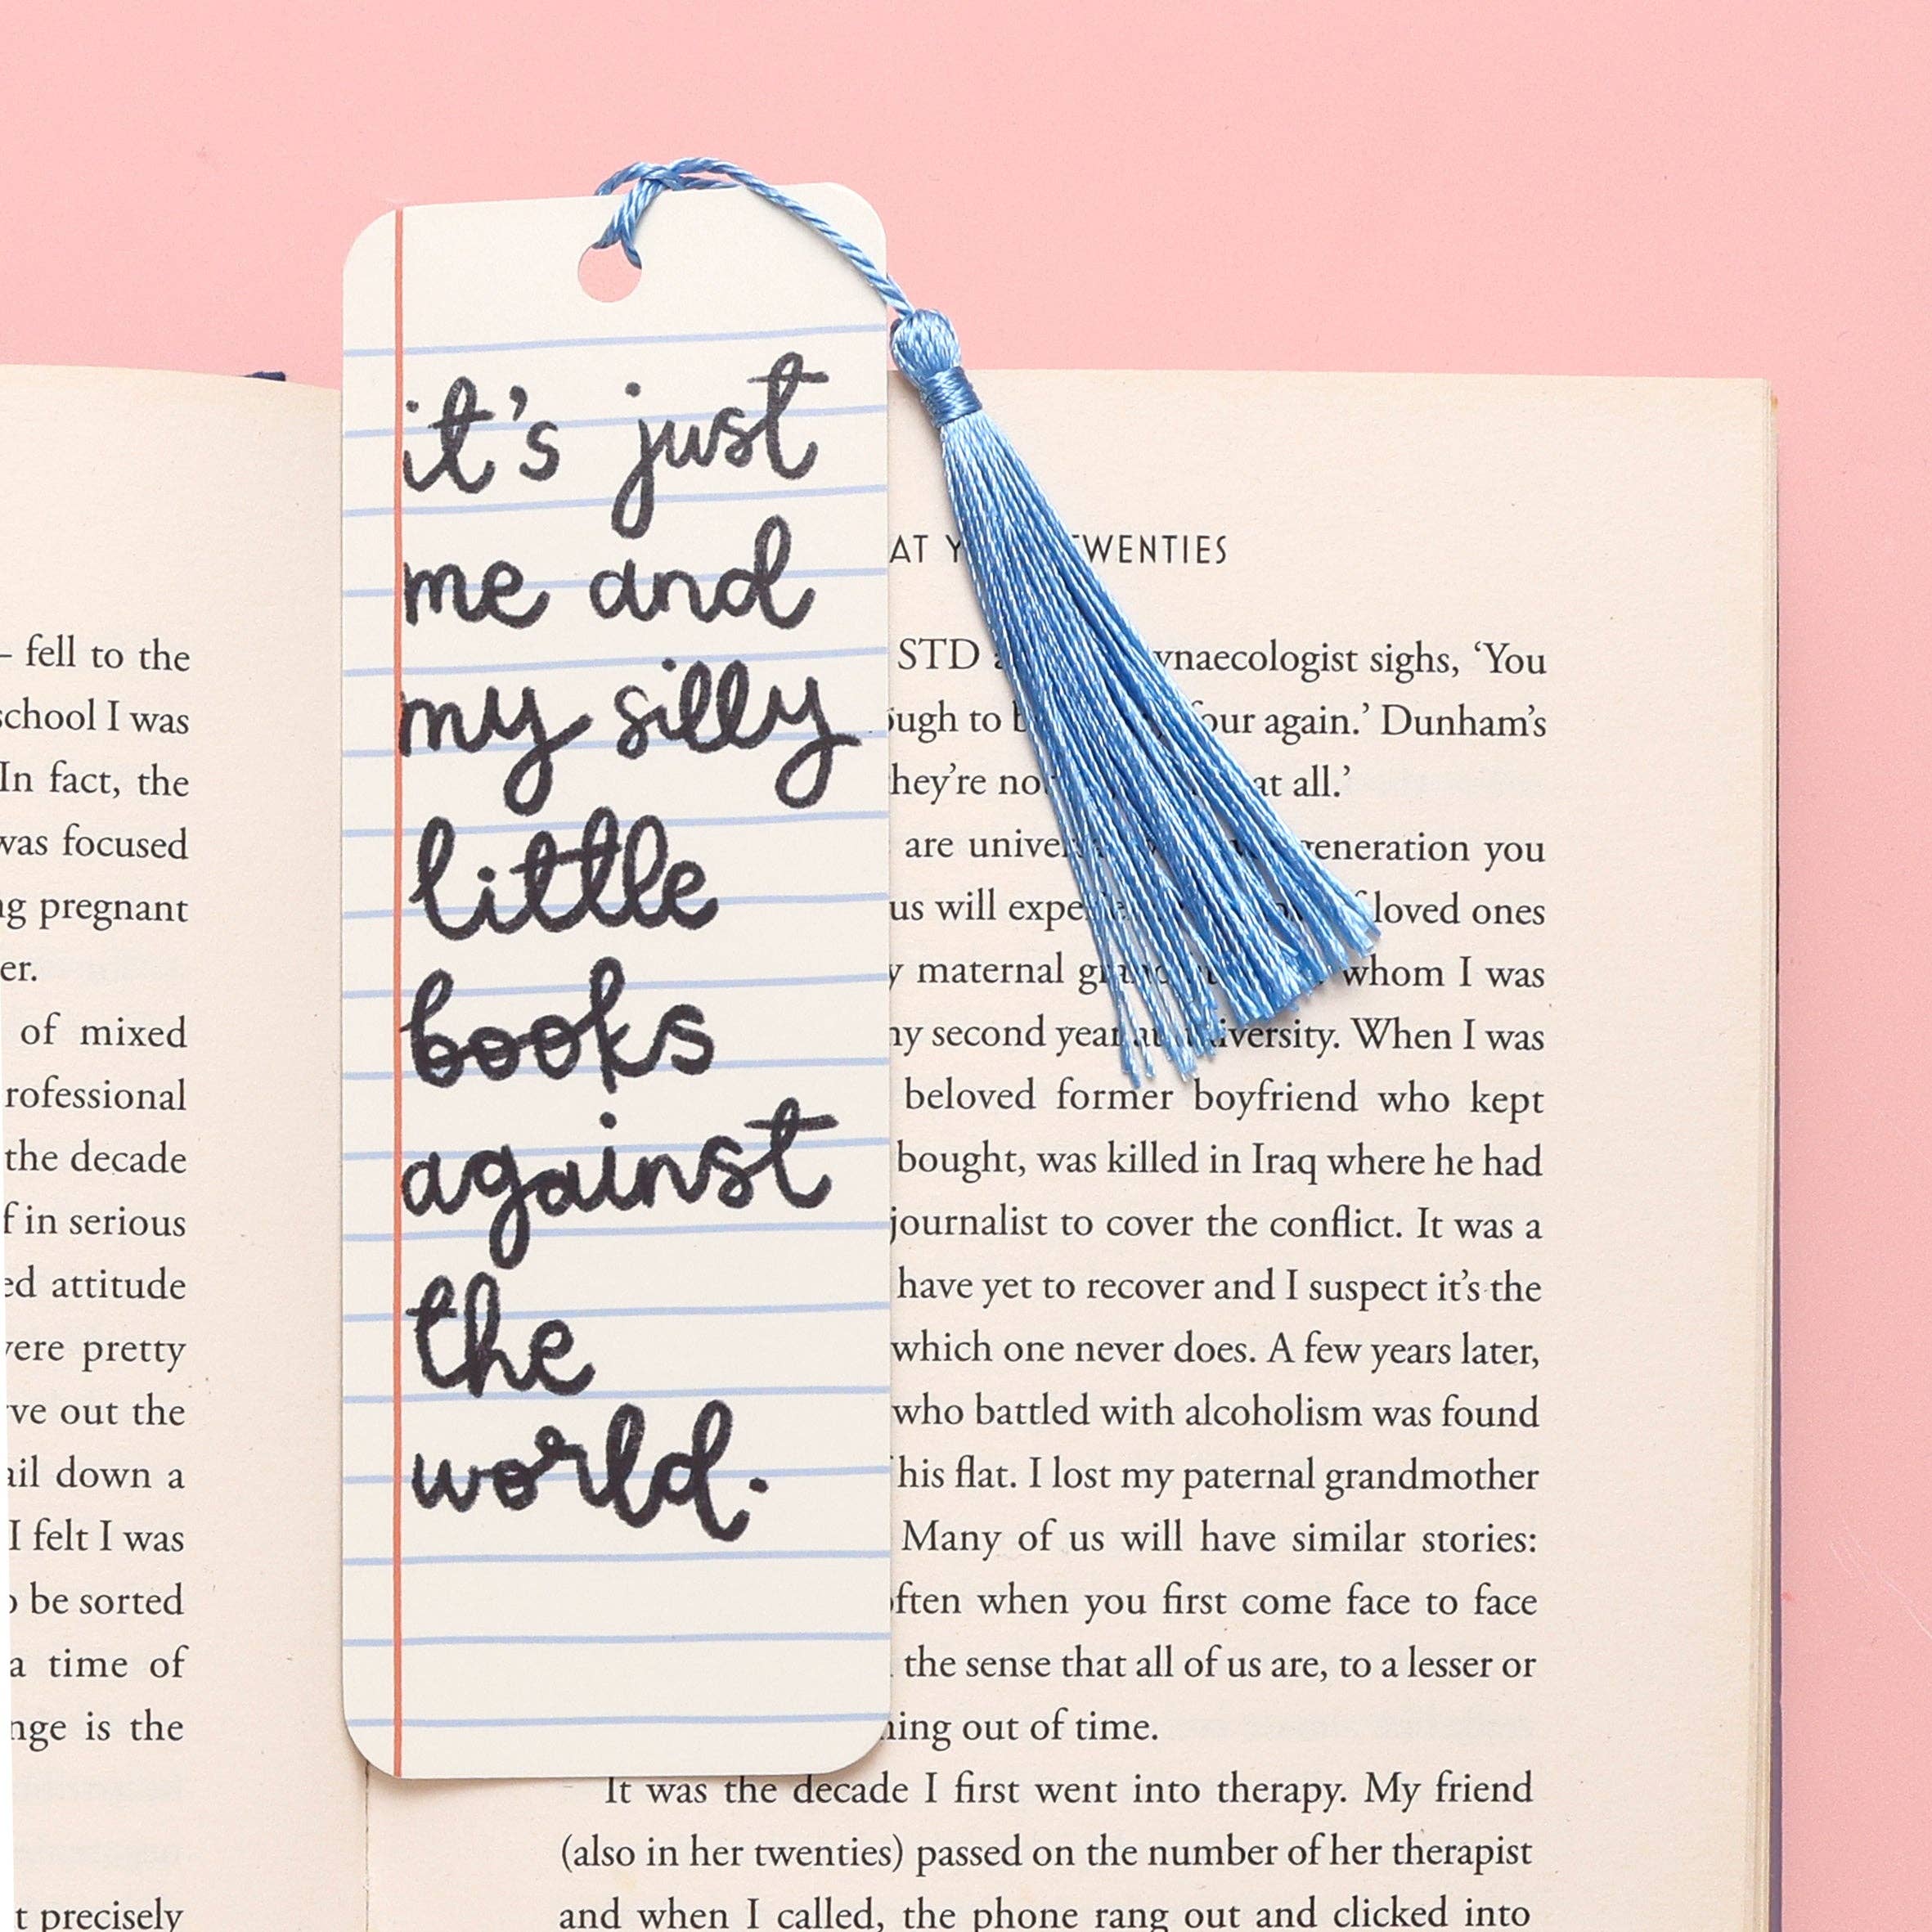 it's just
me and
my silly
little
books
against
the
world.
– fell to the
school I was
In fact, the
was focused
pregnant
er.
of mixed
the decade
in serious
attitude
pretty
out the
down a
I felt I was
be sorted
a time of
is the
t precisely
AT TWENTIES
STD sighs, ‘You
to again.’ Dunham’s
at all.’
are generation you
us will loved ones
maternal whom I was
second year When I was
beloved former boyfriend who kept
bought, was killed in Iraq where he had
journalist to cover the conflict. It was a
have yet to recover and I suspect it’s the
which one never does. A few years later,
who battled with alcoholism was found
his flat. I lost my paternal grandmother
Many of us will have similar stories:
when you first come face to face
the sense that all of us are, to a lesser or
out of time.
It was the decade I first went into therapy. My friend
(also in her twenties) passed on the number of her therapist
and when I called, the phone rang out and clicked into